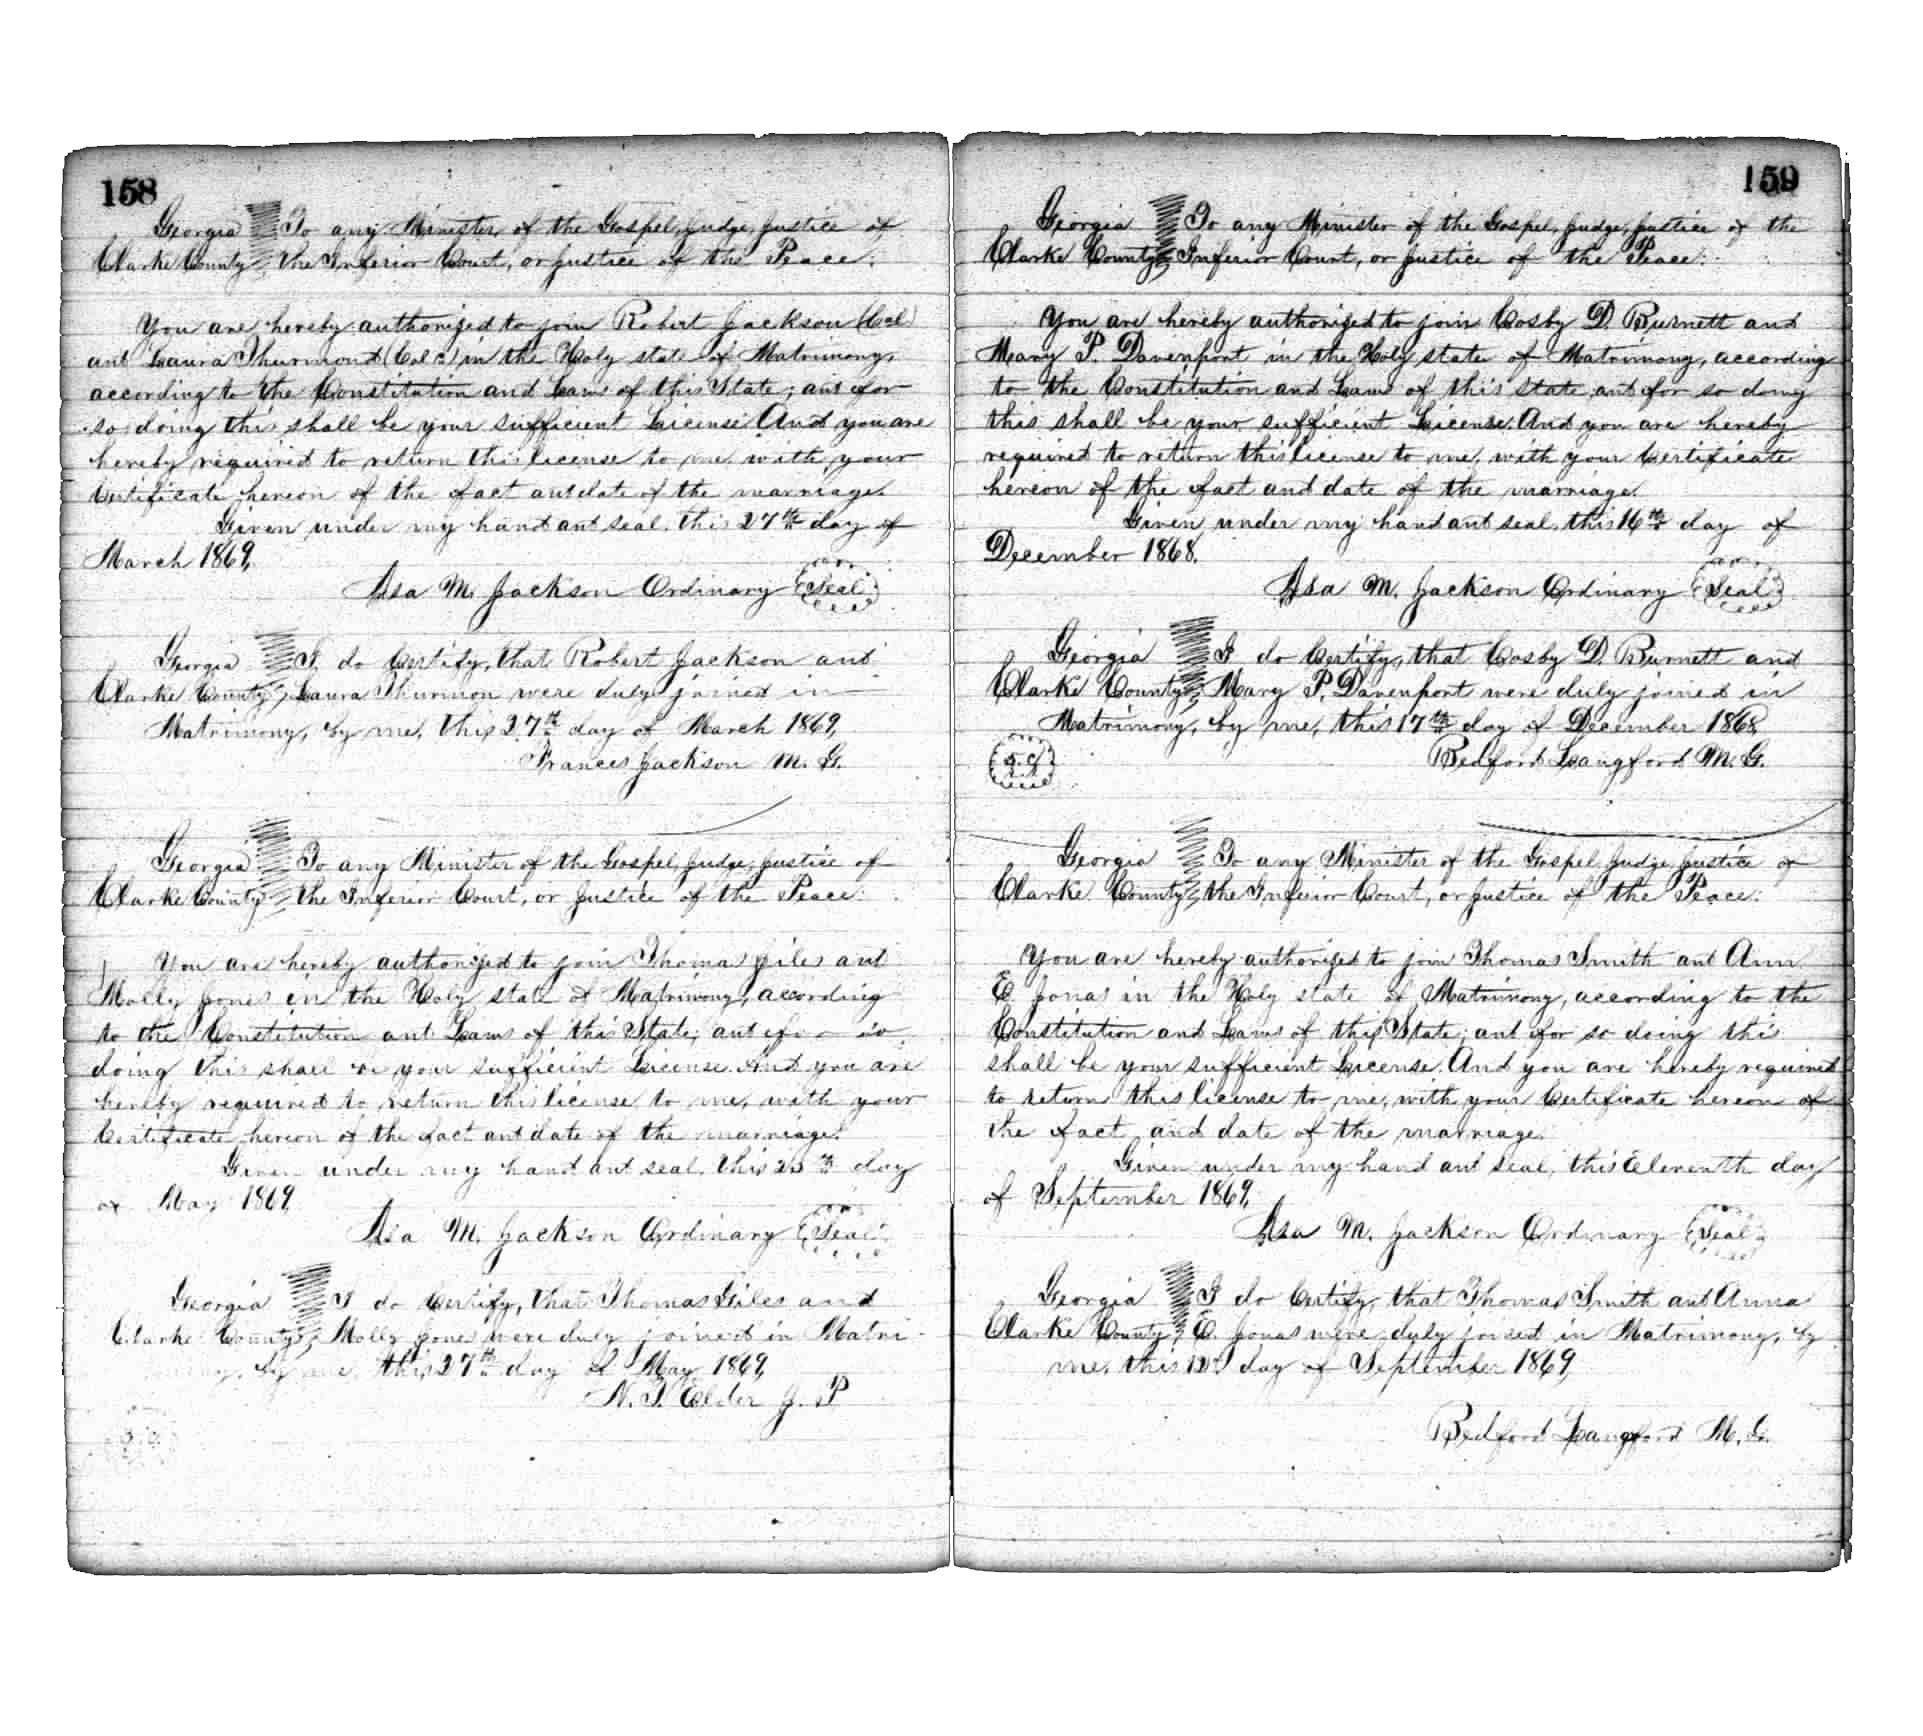 158
Georgia To any Minister of the Gospel, Judge, Justice of
Clarke County, the Inferior Court, or Justice of the Peace:
You are hereby authorized to join Robert Jackson (Col)
and Laura Thurmond (Col.) in the Holy state of Matrimony,
according to the Constitution and Laws of this State; and for
so doing this shall be your sufficient License. And you are
hereby required to return this license to me, with your
Certificate hereon of the fact and date of the marriage.
Given under my hand and seal, this 27th day of
March 1869,
Asa M. Jackson Ordinary Seal
Georgia I, do Certify, that Robert Jackson and
Clarke County, Laura Thurmon were duly joined in
Matrimony, by me, this 27th day of March 1869,
Frances Jackson M. G.
Georgia To any Minister of the Gospel, Judge, Justice of
Clarke County the Inferior Court, or Justice of the Peace:
You are hereby authorized to join Thomas Giles and
Molly Jones in the Holy state of Matrimony, according
to the Constitution and Laws of this State; and for so
doing this shall be your sufficient License. And you are
hereby required to return this license to me, with your
Certificate hereon of the fact and date of the marriage.
Given under my hand and seal, this day
of May 1869
Asa M. Jackson Ordinary Seal
Georgia I do Certify, that Thomas Giles and
Clarke County, Molly Jones were duly joined in Matri-
mony, by me, this 27th day of May 1869,
N. T. Elder J. P
159
Georgia To any Minister of the Gospel, Judge, Justice of the
Clarke County Inferior Court, or Justice of the Peace:
You are hereby authorized to join Cosby D. Burnett and
Mary P. Davenport in the Holy state of Matrimony, according
to the Constitution and Laws of this State and for so doing
this shall be your sufficient License. And you are hereby
required to return this license to me, with your Certificate
hereon of the fact and date of the marriage.
Given under my hand and seal, this 16th day of
December 1868.
Asa M. Jackson Ordinary Seal
Georgia I do Certify, that Cosby D. Burnett and
Clarke County, Mary P. Davenport were duly joined in
Matrimony, by me, this 17th day of December 1868
Bedford Langford M. G.
Georgia To any Minister of the Gospel, Judge, Justice of
Clarke County, the Inferior Court, or Justice of the Peace:
You are hereby authorized to join Thomas Smith and Ann
E. Jonas in the Holy state of Matrimony, according to the
Constitution and Laws of this State; and for so doing this
shall be your sufficient License. And you are hereby required
to return this license to me, with your Certificate hereon of
the fact and date of the marriage.
Given under my hand and seal, this Eleventh day
of September 1869,
Asa M. Jackson Ordinary Seal
Georgia I do Certify, that Thomas Smith and Anna
Clarke County, E. Jonas were duly joined in Matrimony, by
me, this 12. day of September 1869,
Bedford Langford M. G.